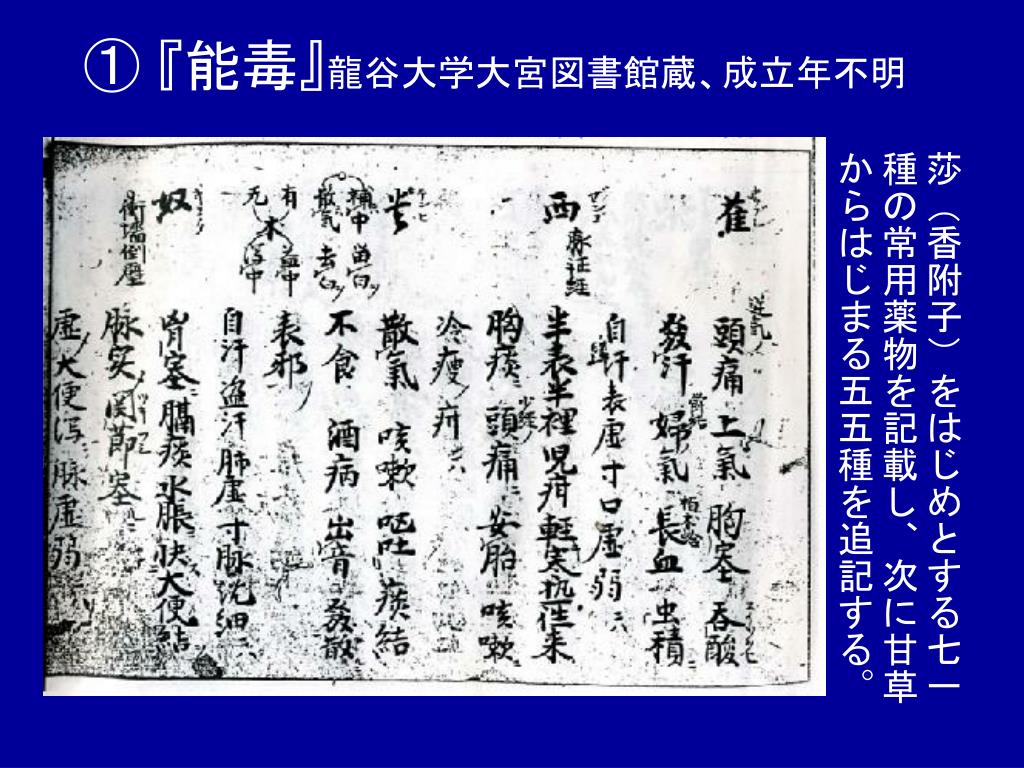 ①『能毒』龍谷大学大宮図書館蔵、成立年不明
莎（香附子）をはじめとする七一
種の常用薬物を記載し、次に甘草
からはじまる五五種を追記する。
頭痛 上氣 胸塞 呑酸
發汗 婦氣 長血 虫積
自汗表虚寸口虚弱
西
半表半裡 児疳 軽 往来
胸痰 頭痛 安胎 咳嗽
冷瘦 疳
散氣 咳嗽 嘔吐 痰結
補中
散氣
有
无
不食 酒病 出音 發散
表邪
自汗盗汗肺虚寸脉沈細
奴
胃塞膈痰水脹快大便結
衝墻倒壁
脉実 関節塞
虚 大便瀉 脉虚弱